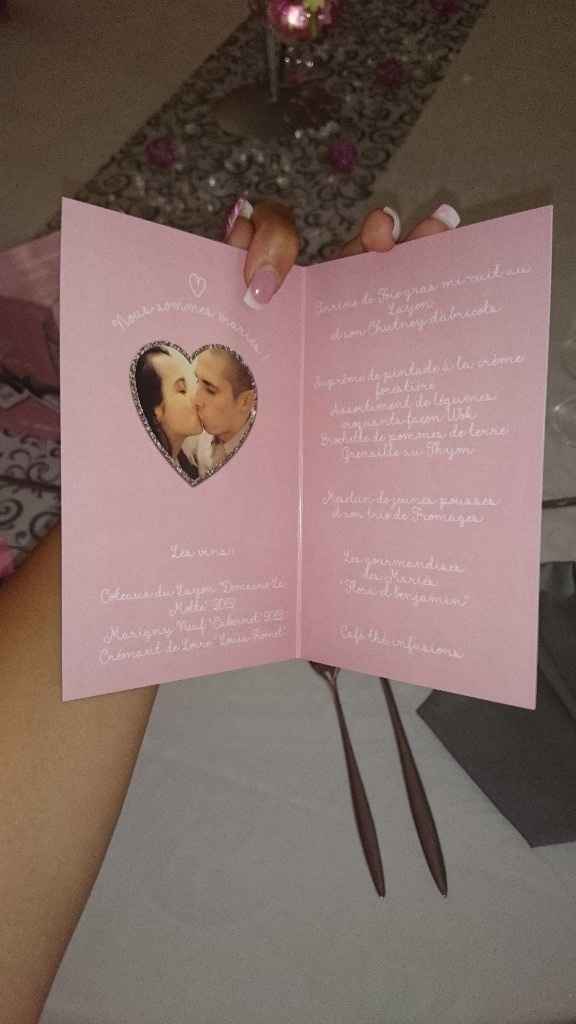 Nous sommes mariés !
Les vins :
Coteaux du Layon "Domaine La
Motte" 2012
Marigny Neuf "Cabernet" 2012
Crémant de Loire "Louis
Terrine de Foie gras mi-cuit au
Layon
et son Chutney d'abricots
Suprême de pintade à la crème
forestière
Assortiment de légumes
croquants façon Wok
Brochette de pommes de terre
Grenaille au Thym
de jeunes pousses
et son trio de Fromages
Les gourmandises
des Mariés
"Flora et benjamin"
Café thé infusions